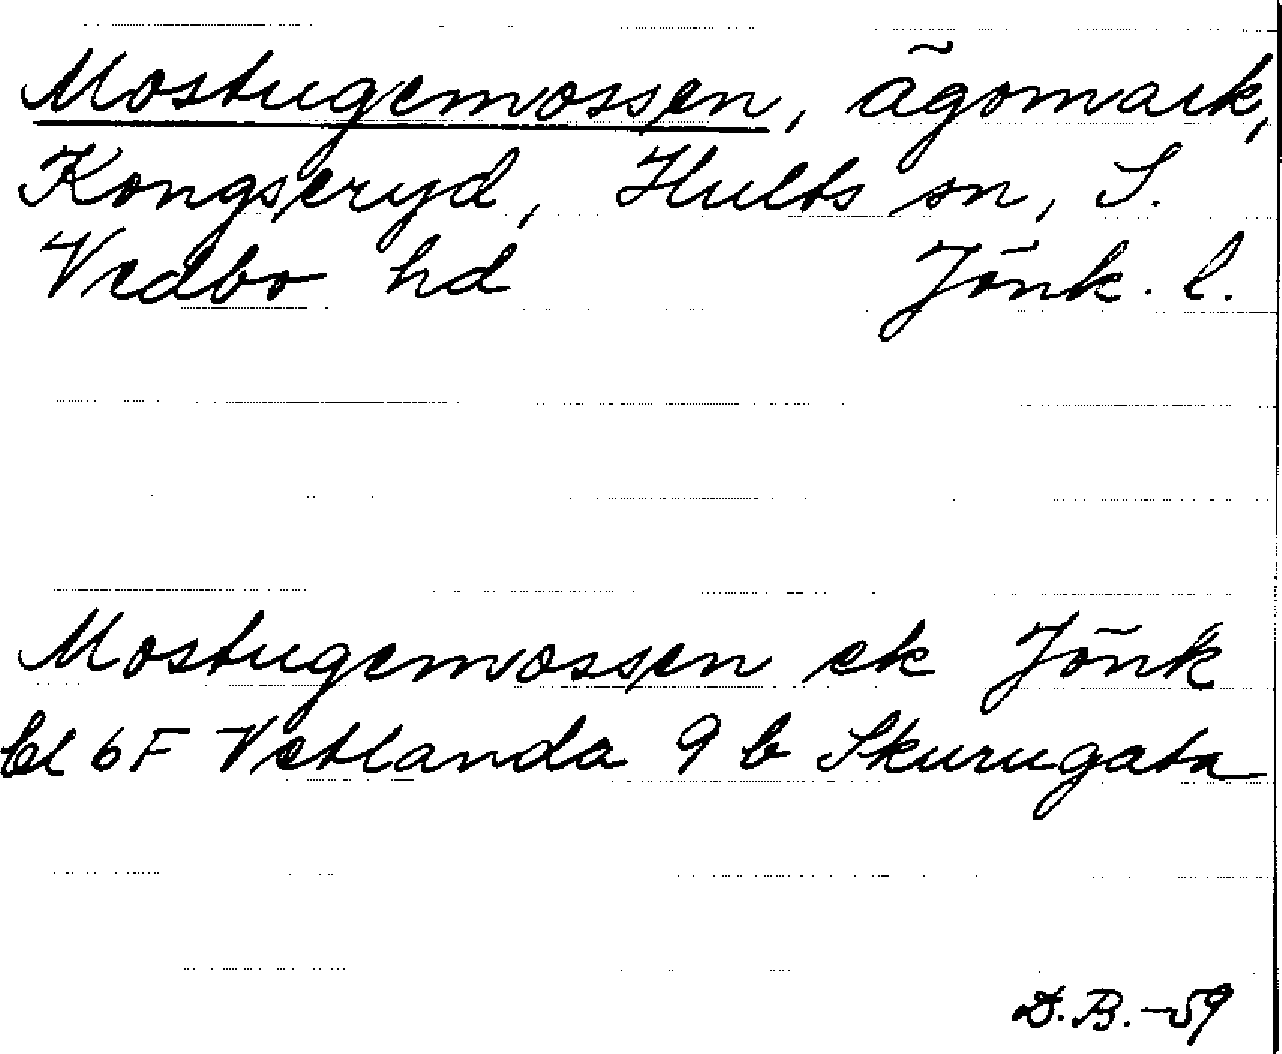 Mostugemossen, ägomark,
Kongseryd, Hults sn, S.
Vedbo hd Jönk. l.
Mostugemossen ek Jönk
bl 6F Vetlanda 9 b Skurugata
D.B.-59